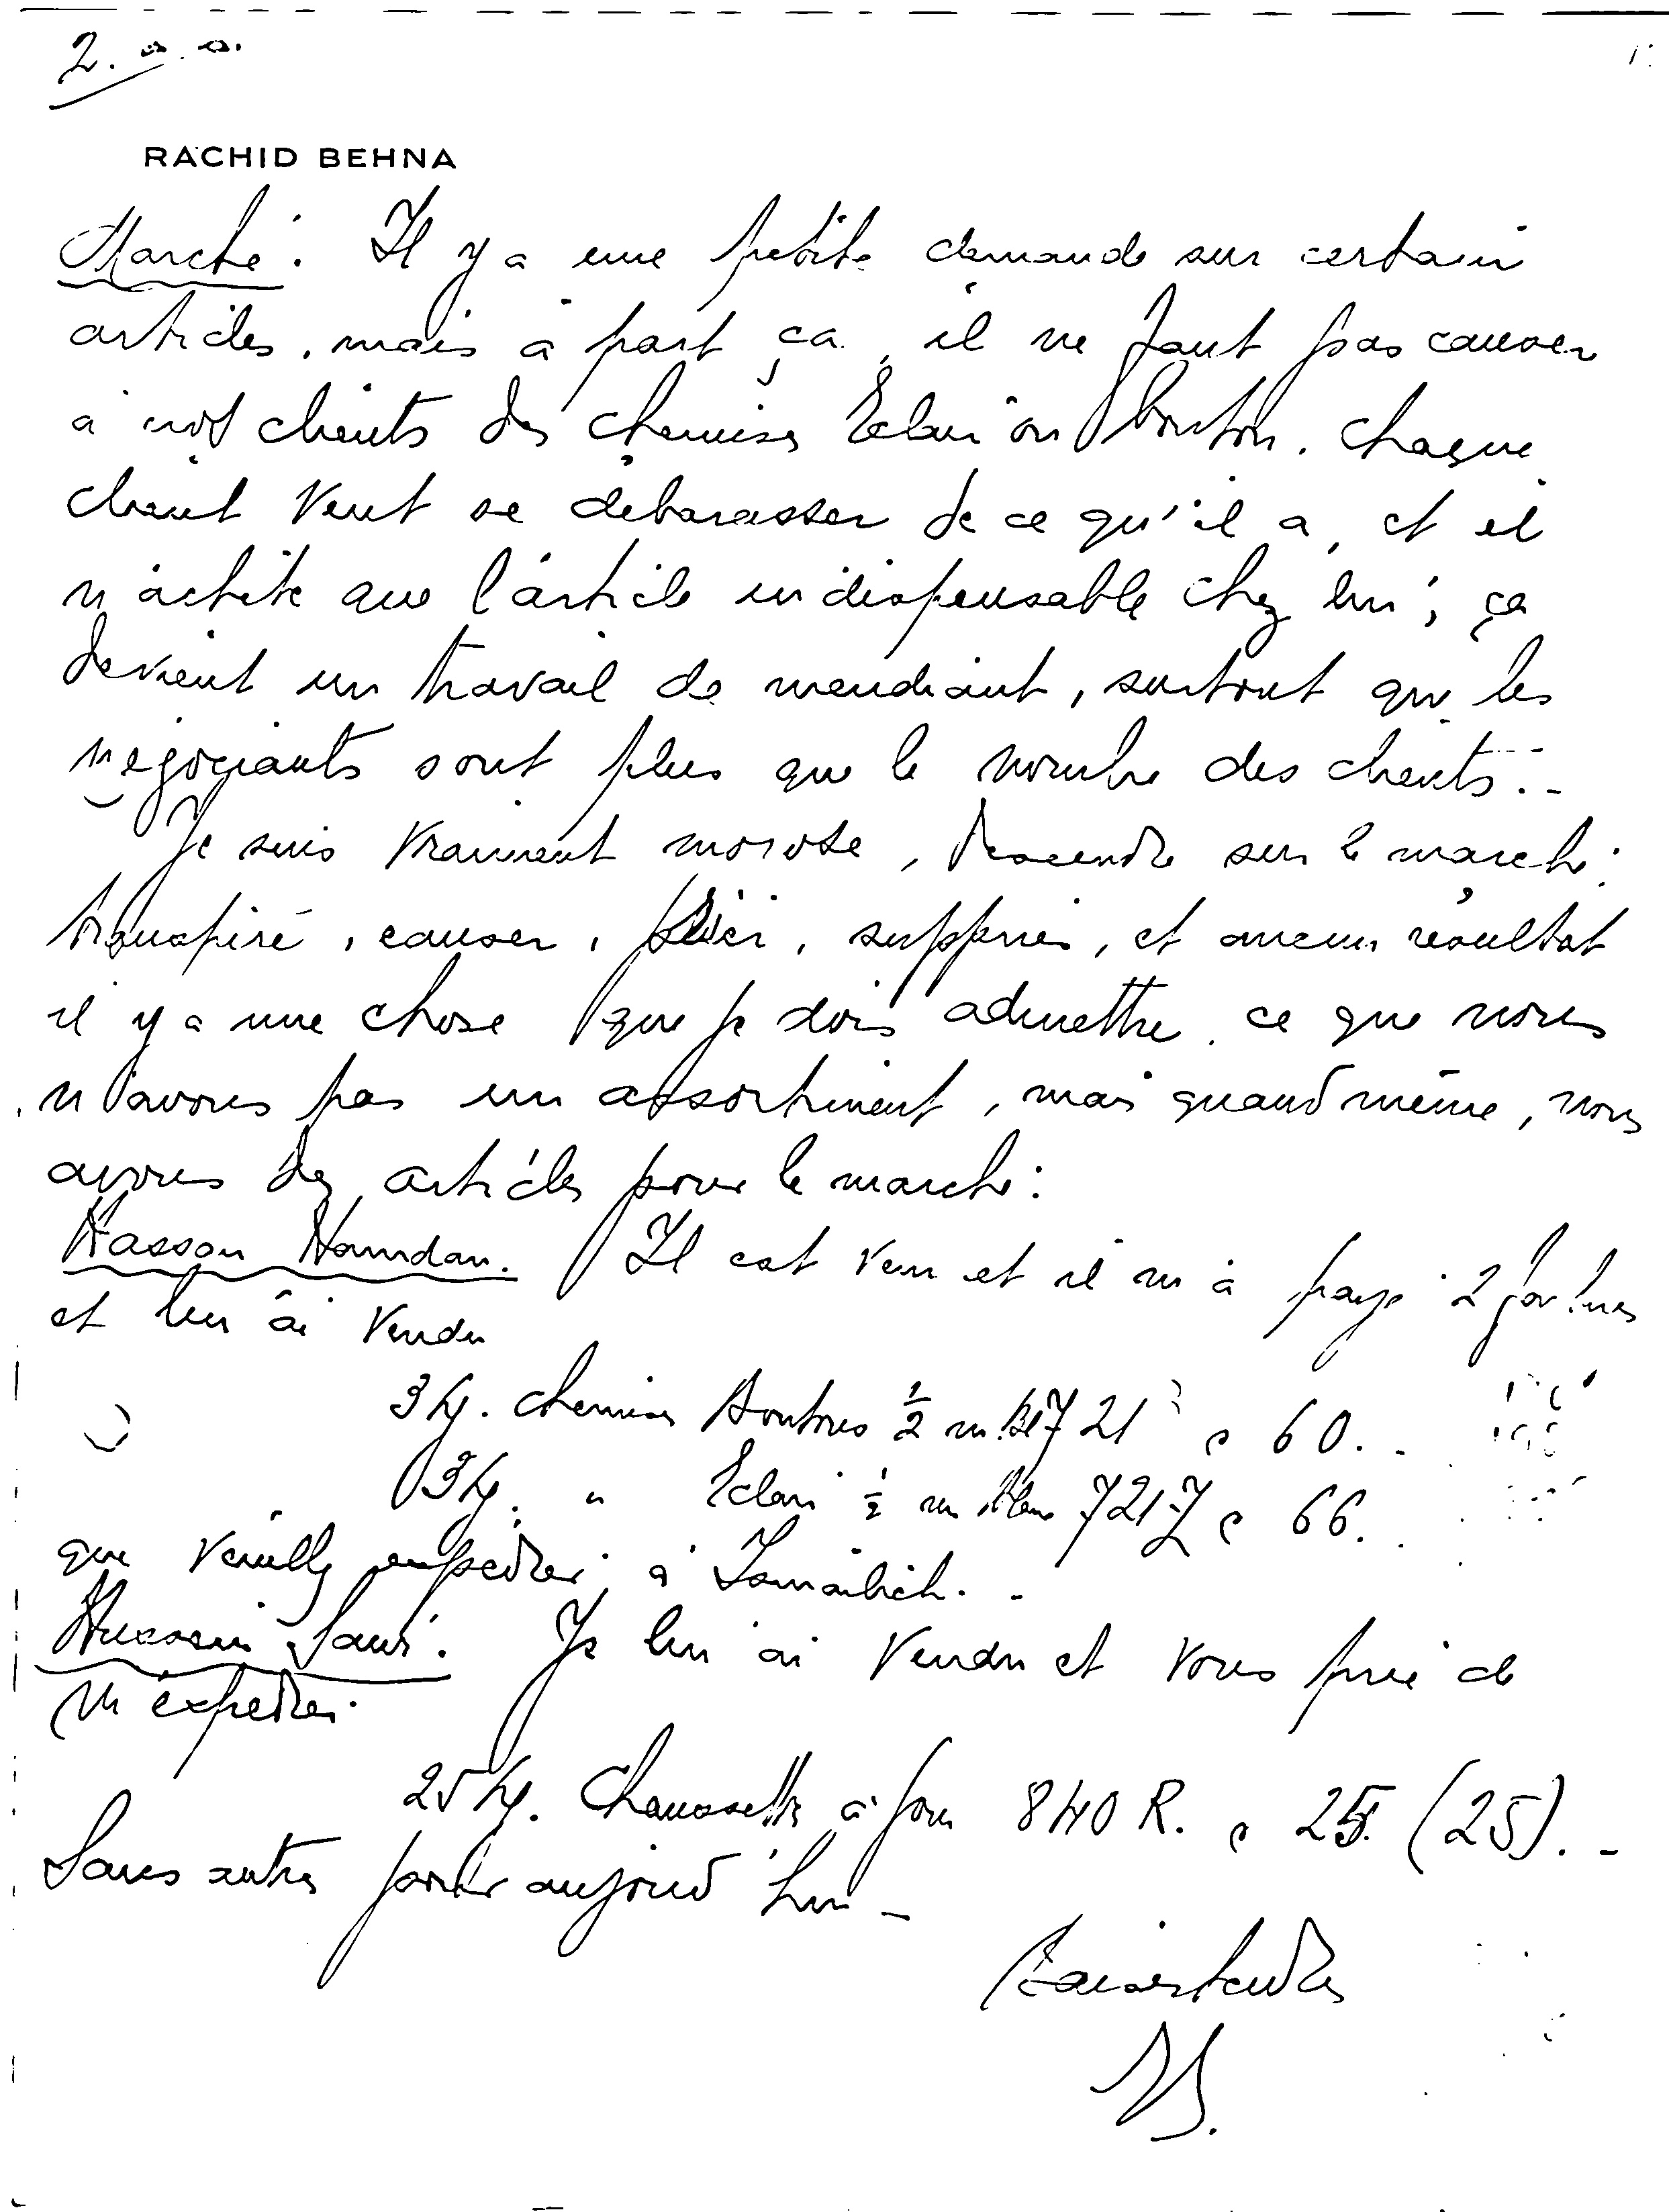 2.
RACHID BEHNA
Marché. Il y a une petite demande sur certain
articles, mais à part ça, il ne faut pas causer
à nos clients des chemises Eclair ou bouton. Chaque
client veut se debarasser de ce qu'il a, et il
n'achète que l'article indispensable chez lui, ça
devient un travail de mendiant, surtout que les
négociants sont plus que le nombre des clients..-
Je suis vraiment morose, descendre sur le marché:
transpiré, causer, plier, supplier, et aucun résultat
il y a une chose que je dois admettre, ce que nous
n'avons pas un assortiment, mais quand même, nous
avons des articles pour le marché:
Hassan Hamdan. Il est venu et il m'a payé 2
et lui ai vendu
3 chemises boutons ½ m. 721 60..-
3 " Eclair ½ m 7217 66..
que veuillez expedier à Ismaïlieh..-
Hussein Je lui ai vendu et vous prie de
m'expedier
25 Chaussettes à jour 840 R. 25. (25)..-
Sans autre pour aujourd'hui -